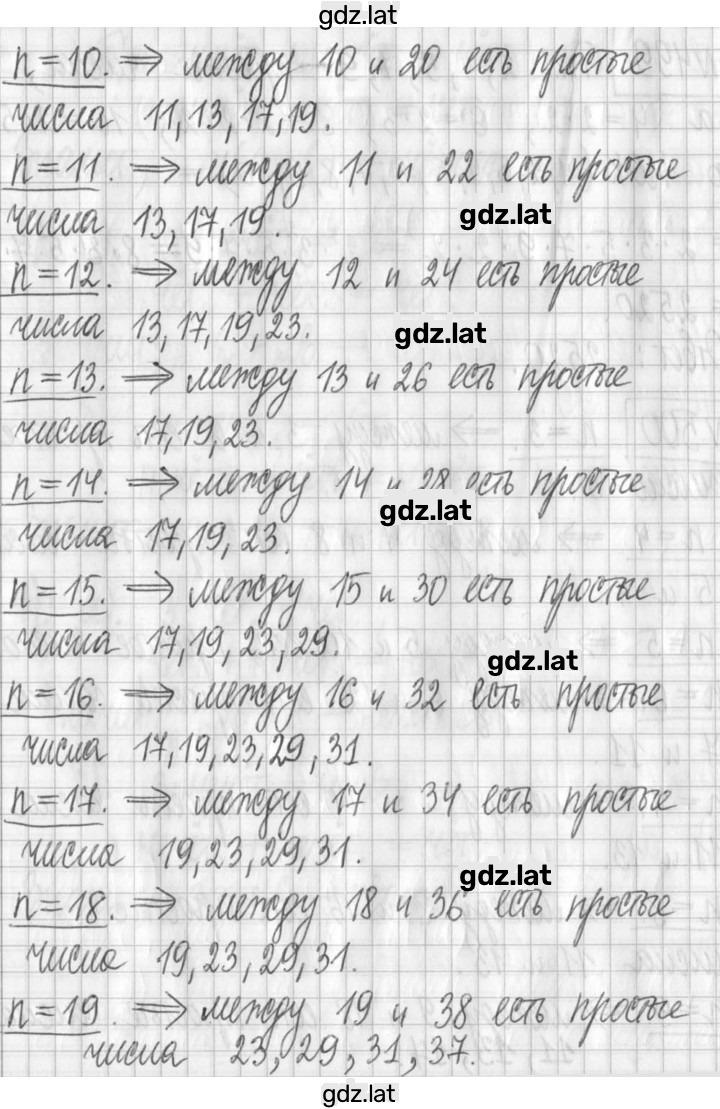 gdz.lat
n=10. ⟹ между 10 и 20 есть простые
числа 11, 13, 17, 19.
n=11. ⟹ между 11 и 22 есть простые
числа 13, 17, 19.
gdz.lat
n=12. ⟹ между 12 и 24 есть простые
числа 13, 17, 19, 23.
gdz.lat
n=13. ⟹ между 13 и 26 есть простые
числа 17, 19, 23.
n=14. ⟹ между 14 и 28 есть простые
gdz.lat
числа 17, 19, 23.
n=15. ⟹ между 15 и 30 есть простые
числа 17, 19, 23, 29.
gdz.lat
n=16. ⟹ между 16 и 32 есть простые
числа 17, 19, 23, 29, 31.
n=17. ⟹ между 17 и 34 есть простые
числа 19, 23, 29, 31.
gdz.lat
n=18. ⟹ между 18 и 36 есть простые
числа 19, 23, 29, 31.
n=19. ⟹ между 19 и 38 есть простые
числа 23, 29, 31, 37.
gdz.lat